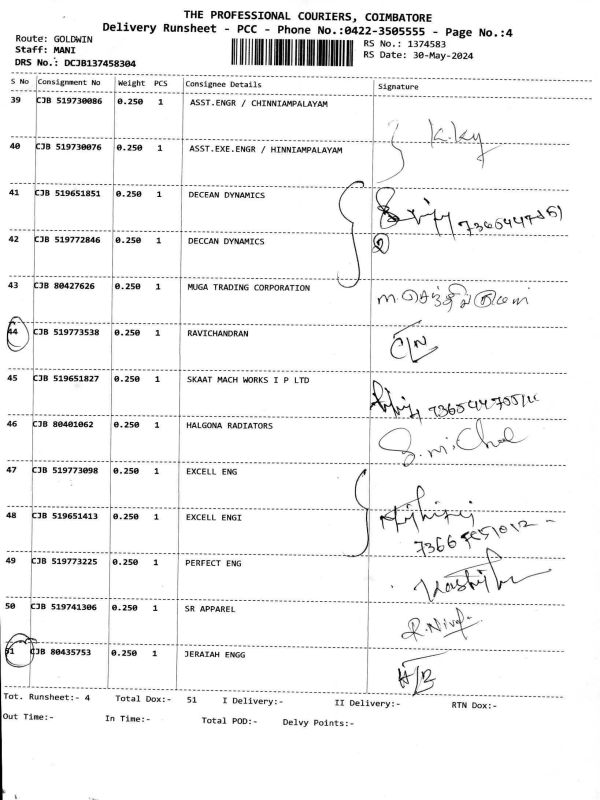 THE PROFESSIONAL COURIERS, COIMBATORE
Delivery Runsheet - PCC - Phone No.:0422-3505555 - Page No.:4
Route: GOLDWIN
RS No.: 1374583
Staff: MANI
RS Date: 30-May-2024
DRS No.: DCJB137458304
S No Consignment No Weight PCS Consignee Details Signature
39 CJB 519730086 0.250 1 ASST.ENGR / CHINNIAMPALAYAM
K.Ky
40 CJB 519730076 0.250 1 ASST.EXE.ENGR / HINNIAMPALAYAM
41 CJB 519651851 0.250 1 DECEAN DYNAMICS
42 CJB 519772846 0.250 1 DECCAN DYNAMICS 2
43 CJB 80427626 0.250 1 MUGA TRADING CORPORATION
44 CJB 519773538 0.250 1 RAVICHANDRAN C/N
45 CJB 519651827 0.250 1 SKAAT MACH WORKS I P LTD
46 CJB 80401062 0.250 1 HALGONA RADIATORS
47 CJB 519773098 0.250 1 EXCELL ENG
48 CJB 519651413 0.250 1 EXCELL ENGI
49 CJB 519773225 0.250 1 PERFECT ENG
50 CJB 519741306 0.250 1 SR APPAREL
51 CJB 80435753 0.250 1 JERAIAH ENGG
Tot. Runsheet:- 4 Total Dox:- 51 I Delivery:- II Delivery:- RTN Dox:-
Out Time:- In Time:- Total POD:- Delvy Points:-